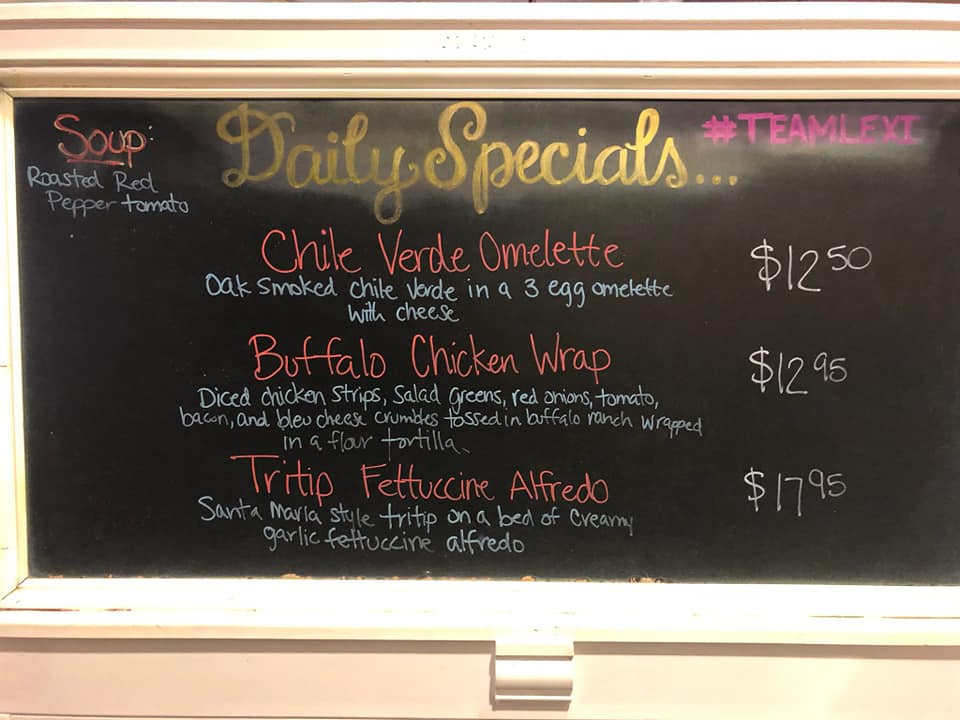 Soup:
Roasted Red
Pepper tomato
Daily Specials...
#TEAMLEXI
Chile Verde Omelette
$12 50
Oak smoked chile verde in a 3 egg omelette
with cheese
Buffalo Chicken Wrap
$12 95
Diced chicken strips, salad greens, red onions, tomato,
bacon, and bleu cheese crumbles tossed in buffalo ranch wrapped
in a flour tortilla.
Tritip Fettuccine Alfredo
$17 95
Santa Maria style tritip on a bed of creamy
garlic fettuccine alfredo